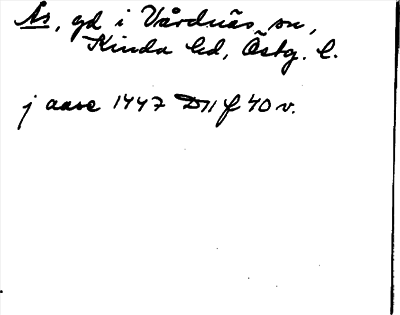 Ås, gd i Vårdnäs sn,
Kinda hd, Östg. l.
j aase 1447 D11 f 40 v.